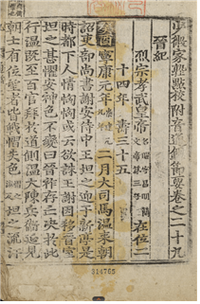 少微家塾點校附音資治通鑑節要卷之二十九
晉紀
烈宗孝武皇帝 在位二
十四年 壽三十五
寧康元年 二月大司馬溫來朝
詔吏部尚書謝安侍中王坦之迎于新亭是
時都下人情恟恟或云欲誅王謝因移晉室
坦之甚懼安神色不變曰晉祚存亡決於此
行溫既至百官拜於道側溫大陳兵衛延見
朝士有位望者皆戰慴失色 坦之流汗
114765